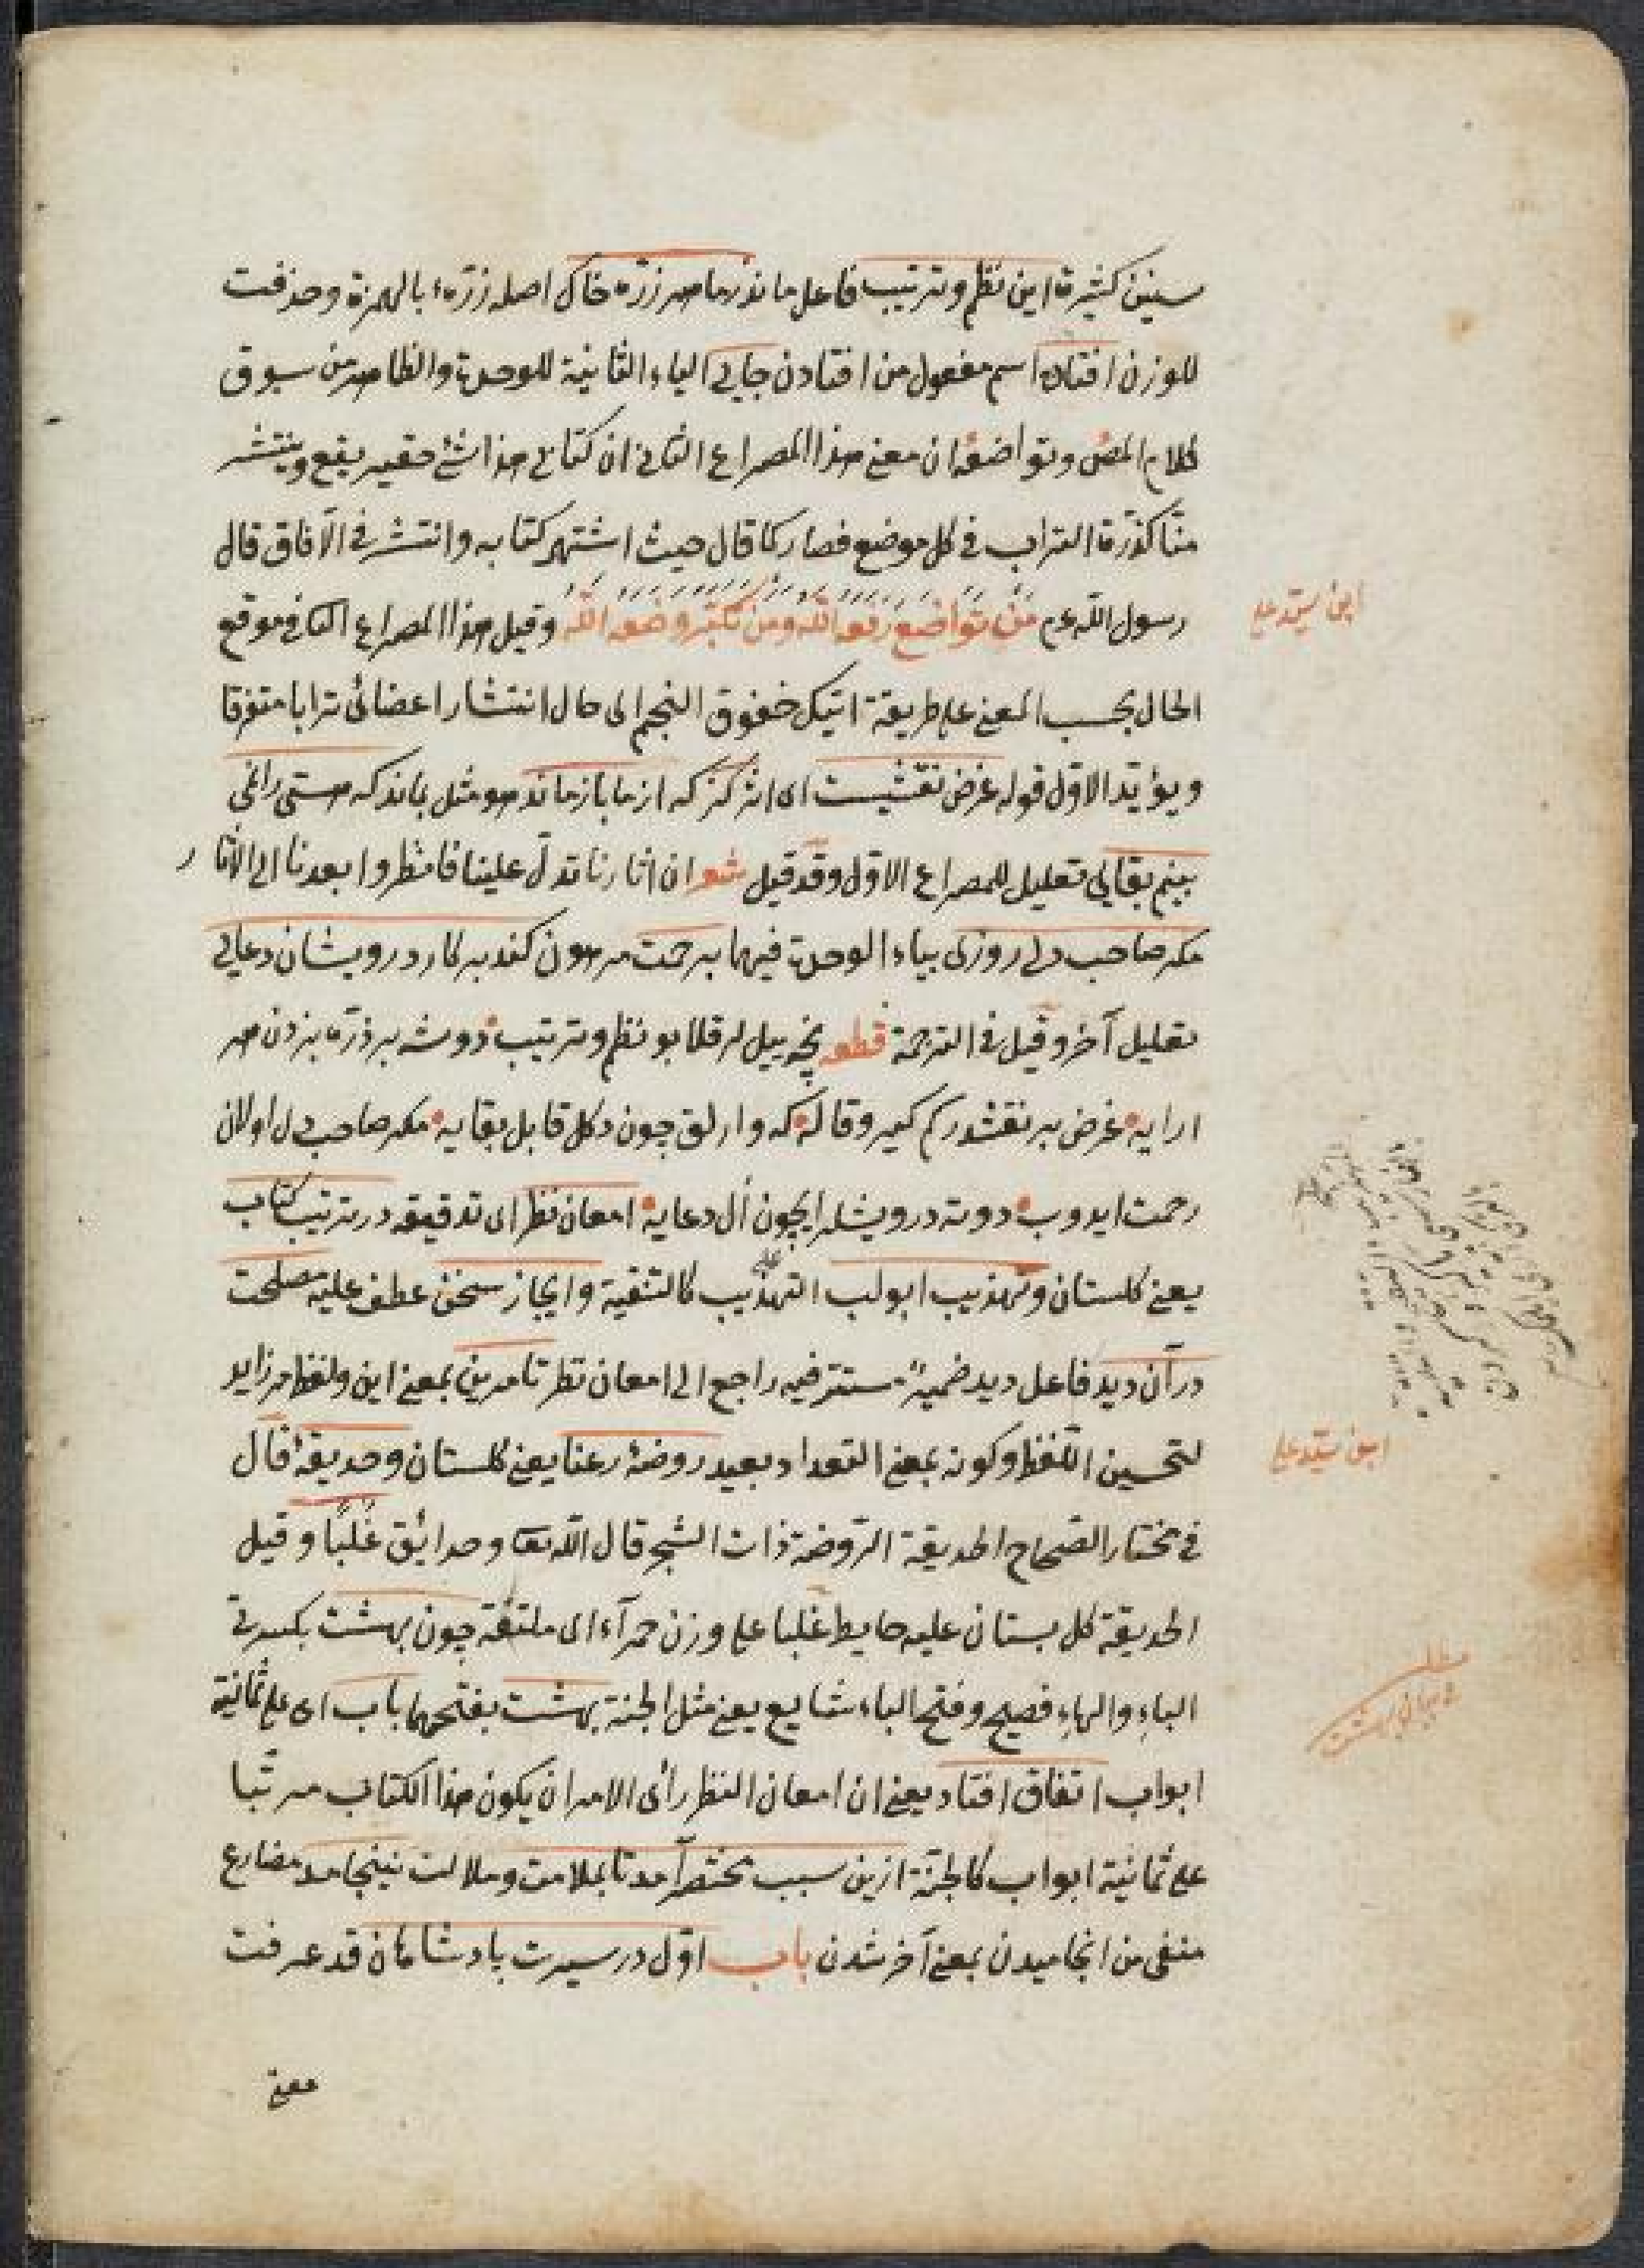 سنين كثيرة اين نظم وترتيب فاعل ماند زما هر ذرّه خاك اصله ذرّهء بالهمزة وحذفت
للوزن افتاده اسم مفعول من افتادن جايى الياء الثانية للوحدة والظاهر من سوق
كلام المص وتواضعه ان معنى هذا المصراع الثانى ان كتابى هذا شئ حقير يقع وينتشر
منّا كذرّة التراب فى كل موضع فصار كما قال حيث اشتهر كتابه وانتشر فى الآفاق قال
رسول الله عم من تواضع رفعه الله ومن تكبّر وضعه الله وقيل هذا المصراع الثانى موقع
ابن سيد على
الحال بحسب المعنى على طريقة اتيتك خفوق النجم اى حال انتشار اعضائى ترابا متفرقا
ويؤيد الاوّل قوله غرض نقشيست اى اثر كز كه از ما باز ماند هو مثل بماند كه هستى را نمى
بينم بقايى تعليل للمصراع الاوّل وقد قيل شعر ان اثارنا تدلّ علينا فانظروا بعدنا الى الآثار
مكر صاحب دلى روزى بياء الوحدة فيهما برحمت مرهون كند بر كار درويشان دعايى
تعليل آخر وقيل فى الترجمة قطعه نجه ييللر قلا بو نظم وترتيب دوشه بر ذرّه بزدن هر
ارايه غرض بر نقشدر كم كيرو قاله كه وارلق چون دكل قابل بقايه مكر صاحب دل اولان
رحمت ايدوب دوته درويشلر ايچون أل دعايه امعان نظر اى تدقيقه در ترتيب كتاب
يعنى كلستان وتهذيب ابواب التهذيب كالتنقية وايجاز سخن عطف عليه مصلحت
در آن ديد فاعل ديد ضمير مستتر فيه راجع الى امعان نظر تا مر ين بمعنى اين ولفظ مر زايد
لتحسين اللّفظ وكونه بمعنى التعداد بعيد روضهٔ رعنا يعنى كلستان وحديقهٔ قال
ابن سيد على
فى مختار الصحاح الحديقة الرّوضة ذات الشجر قال الله تعا وحدائق غُلْبًا وقيل
الحديقة كل بستان عليه حايط غلبا على وزن حمرآء اى ملتفّة چون بهشت بكسرتى
الباء والهاء فصيح وفتح الباء شايع يعنى مثل الجنة بهشت بفتحهما باب اى على ثمانية
مطلب
فى بيان بهشت
ابواب اتفاق افتاد يعنى ان امعان النظر رأى الامر ان يكون هذا الكتاب مرتّبا
على ثمانية ابواب كالجنّة ازين سبب مختصر آمد تا بملامت وملالت نينجامد مضارع
منفى من انجاميدن بمعنى آخر شدن باب اوّل در سيرت پادشاهان قد عرفت
معنى